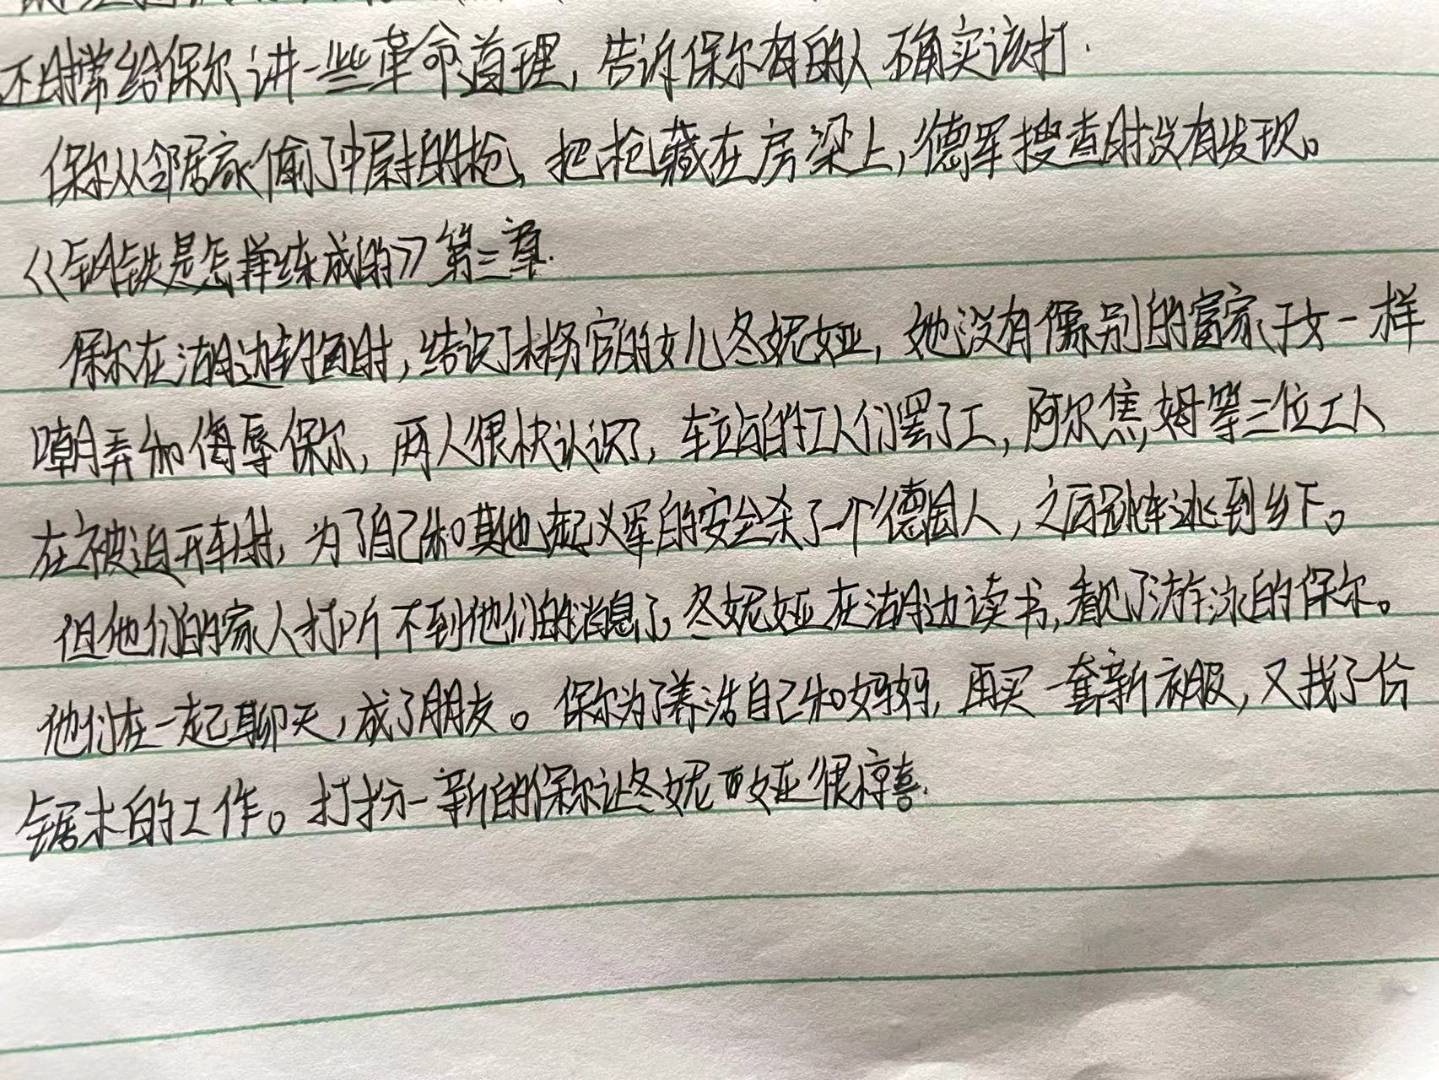 不时常给保尔讲一些革命道理，告诉保尔有的人不确实该打.
保尔从邻居家偷了中尉的枪，把枪藏在房梁上，德军搜查时没有发现。
《钢铁是怎样练成的》第三章.
保尔在湖边钓鱼时，结识了林务官的女儿冬妮娅，她没有像别的富家子女一样
嘲弄和侮辱保尔，两人很快认识了，车站的工人们罢了工，阿尔焦姆等三位工人
在被迫开车时，为了自己和其他起义军的安全杀了一个德国人，之后跳车逃到乡下。
但他们的家人打听不到他们的消息了，冬妮娅在湖边读书，看见了游泳的保尔。
他们在一起聊天，成了朋友。保尔为了养活自己和妈妈，再买一套新衣服，又找了份
锯木的工作。打扮一新的保尔让冬妮娅很惊喜.